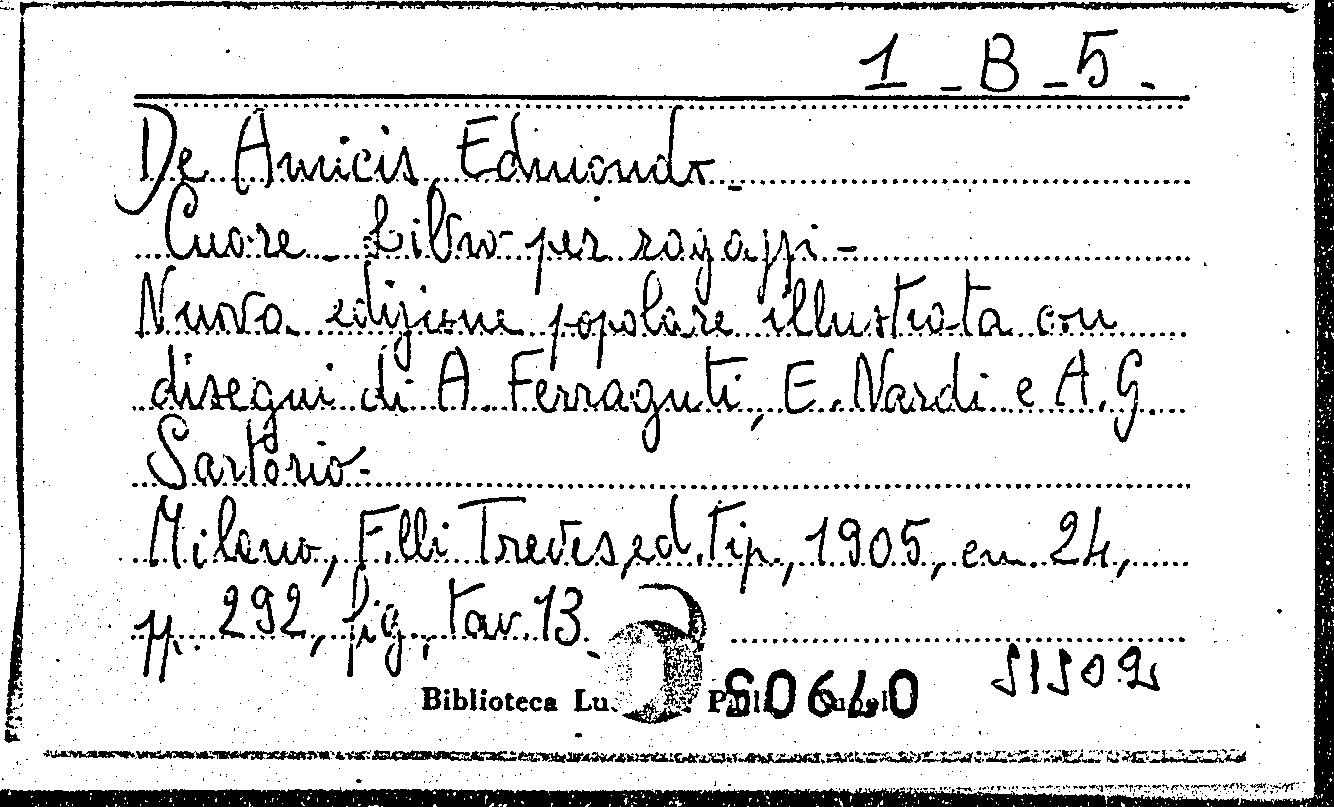 1 - B - 5 -
De Amicis Edmondo -
Cuore - Libro per ragazzi -
Nuova edizione popolare illustrata con
disegni di A. Ferraguti, E. Nardi e A.G.
Sartorio -
Milano, F.lli Treves, ed. tip., 1905, cm. 24,
pp. 292, fig., tav. 13 -
51502
Biblioteca 50640